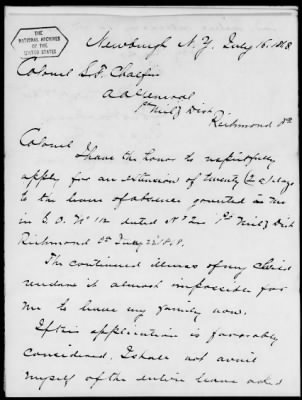 THE
NATIONAL ARCHIVES
OF THE
UNITED STATES
Newburgh N.Y. July 16. 1868
Colonel S. F. Chalfin
A. A. General
1st Mil'y Dist
Richmond Va
Colonel
I have the honor to respectfully
apply for an extension of twenty (20) days
to the leave of absence granted me
in S. O. No 112 dated Hd Qrs 1st Mil'y Dist
Richmond Va July
The continued illness of my
renders it almost impossible for
me to leave my family now.
If this application is favorably
considered. I shall not avail
myself of the entire leave asked